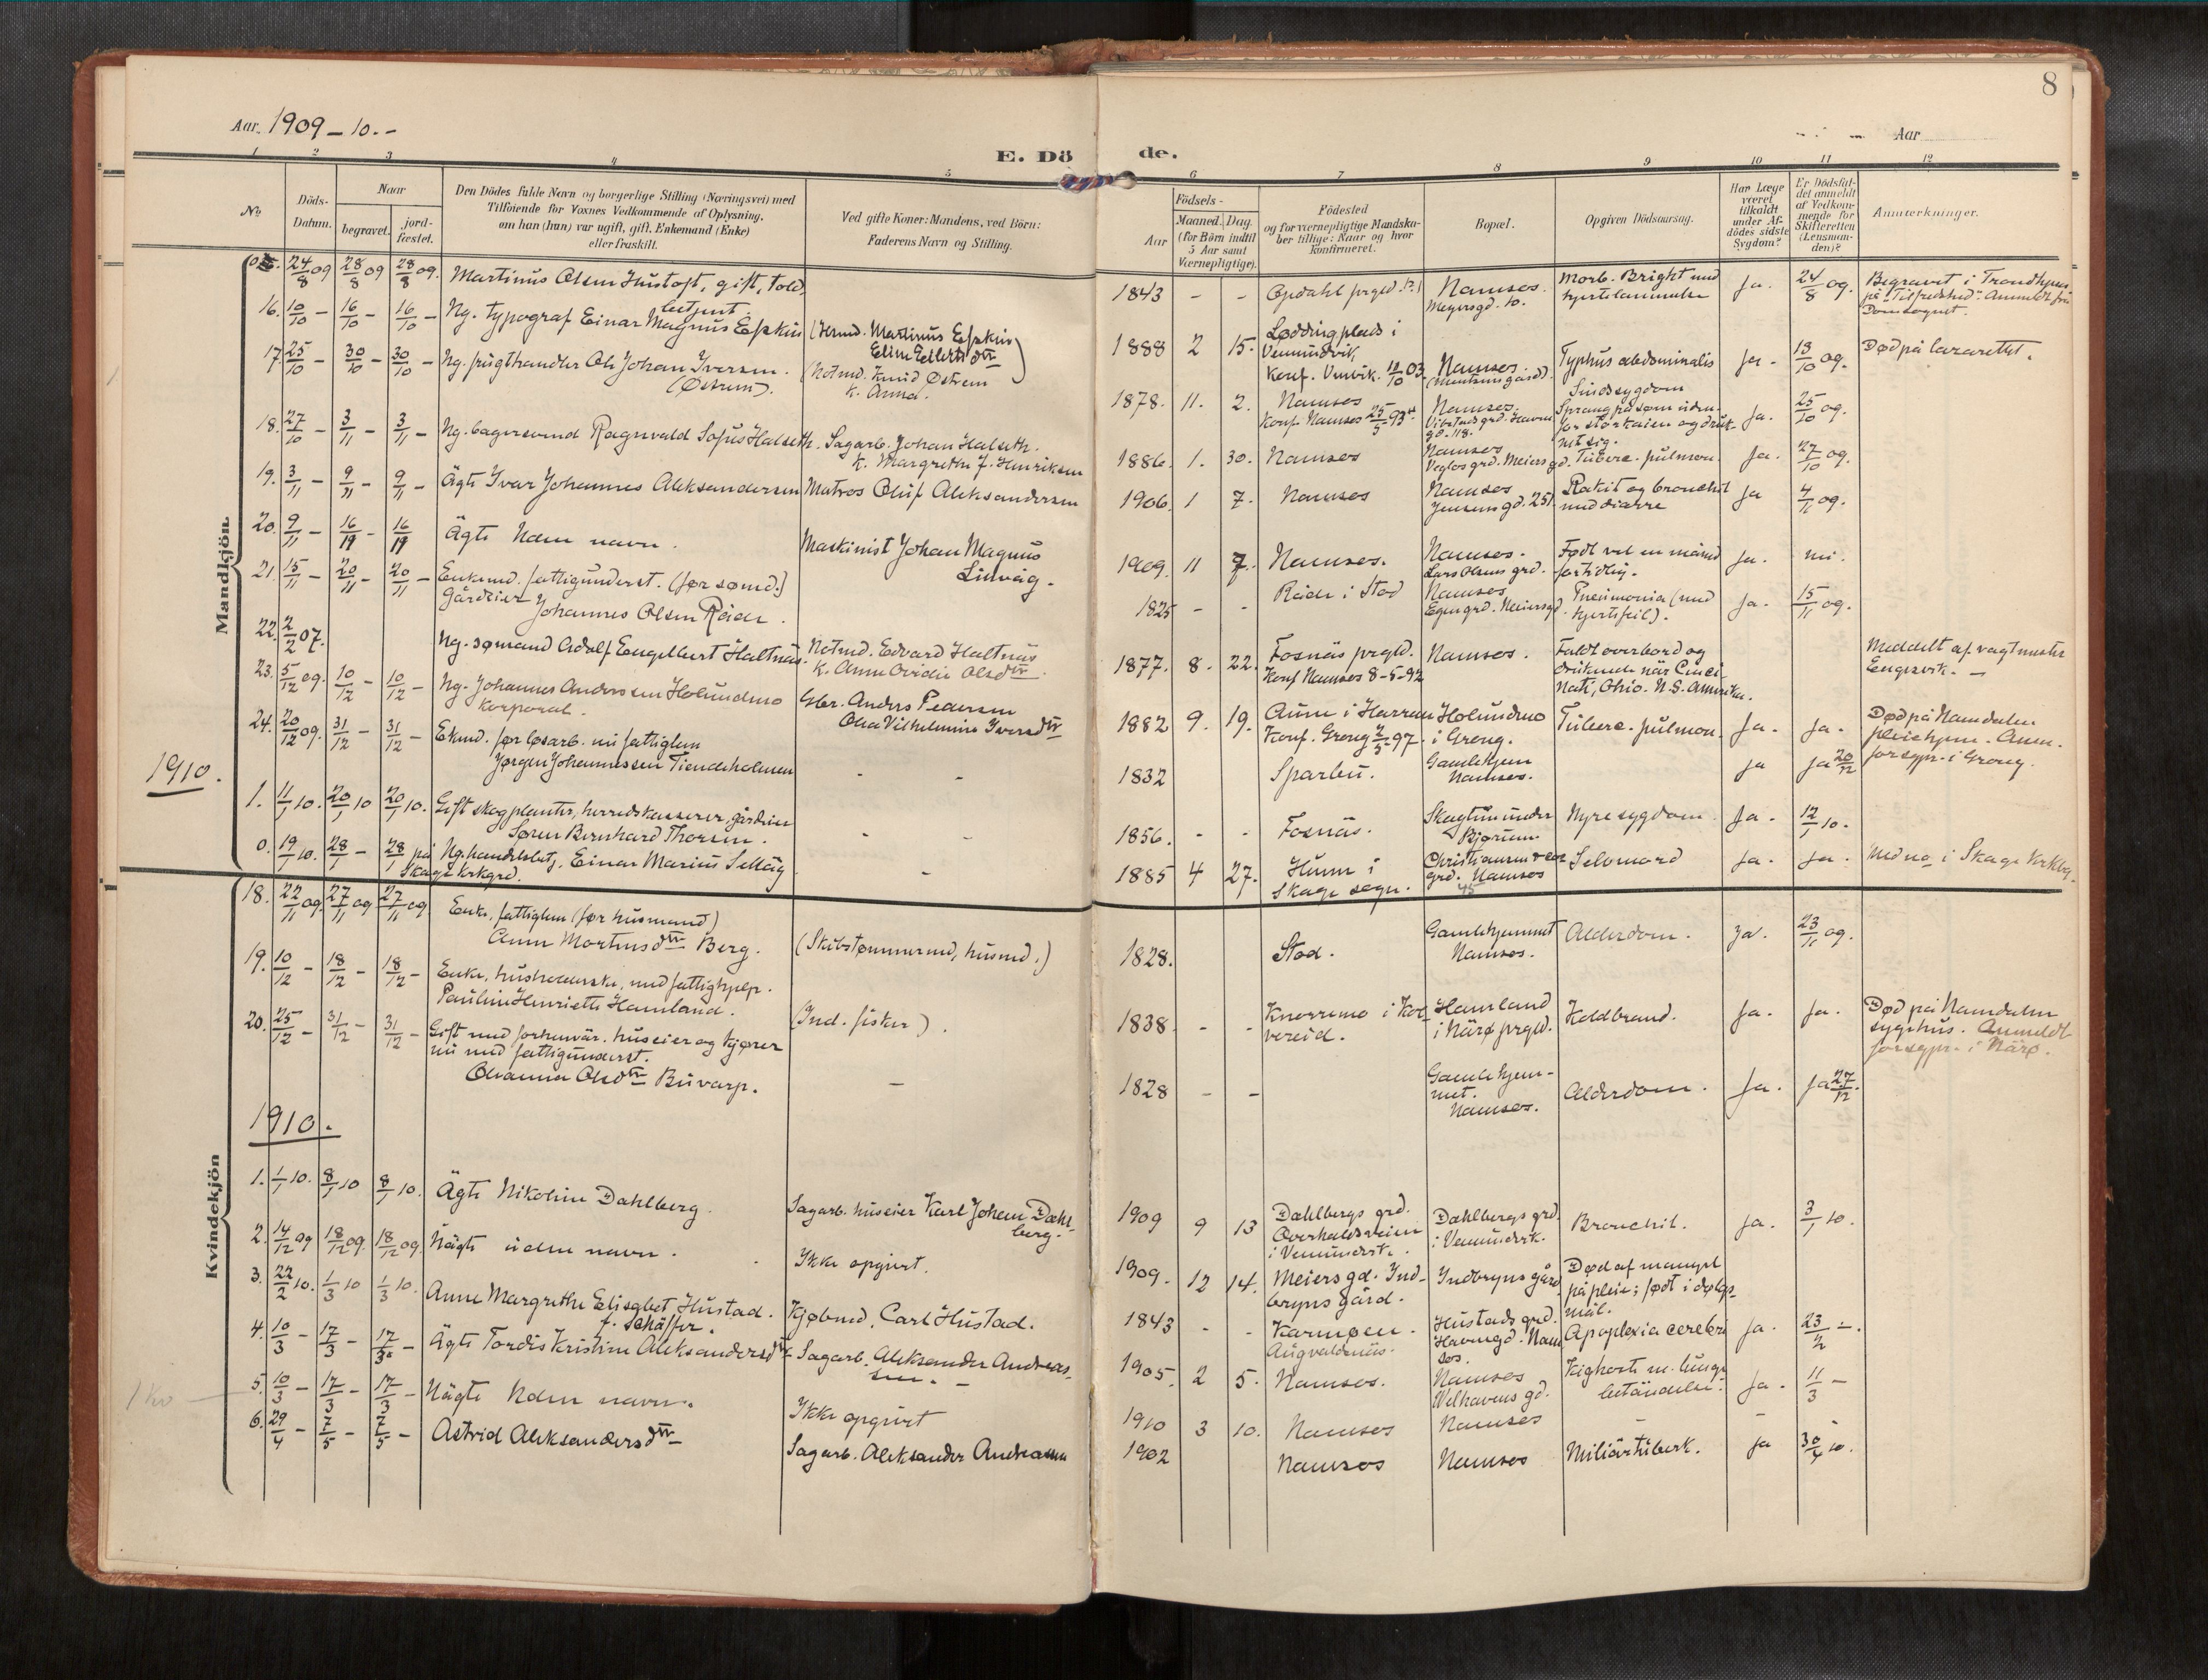 8
Aar 1909 - 10. -
Aar
E. Dö de.
1 2 3 4 5 6 7 8 9 10 11 12
No
Döds-
Datum.
Naar
begravet.
jord-
fæstet.
Den Dödes fulde Navn og borgerlige Stilling (Næringsvei) med
Tilföiende for Voxnes Vedkommende af Oplysning,
om han (hun) var ugift, gift, Enkemand (Enke)
eller fraskilt.
Ved gifte Koner: Mandens, ved Börn:
Faderens Navn og Stilling.
Födsels-
Aar
Maaned. Dag.
(for Börn indtil
5 Aar samt
Værnepligtige).
Födested
og for værnepligtige Mandska-
ber tillige: Naar og hvor
konfirmeret.
Bopæl.
Opgiven Dödsaarsag.
Har Læge
været
tilkaldt
under Af-
dödes sidste
Sygdom?
Er Dödsfal-
det anmeldt
af Vedkom-
mende for
Skifteretten
(Lensman-
den)?
Anmærkninger.
Mandkjön.
24/8 09 28/8 09 28/8 09. Martinus Olsen Hustoft, gift, told
betjent.
1843 - - Opdahl prgld. (?) Namsos. Meyersgd. 10. Morb. Bright med hjertelammelse Ja. 24/8 09. Begravet i Trondhjem på "Tilfredshed". Anmeldt fra Domsognet.
16. 10/10 - 16/10 - 16/10 - Ug. typograf Einar Magnus Espkin (Hrmd. Martinus Espkin
Eline Eilertsdtr)
1888 2 15. Løddingplads i Vemundvik Konf. Vemvik. 03 Namsos. Typhus abdominalis Ja - 13/10 09. Død på lazarettet.
17 25/10 - 30/10 - 30/10 - Ug. frugthandler Ole Johan Iversen. (Østrem). (Notmd. Knud Østrem
k. Anna.
1878. 11. 2. Namsos Konf. Namsos 25/5 93 Namsos. Sindssygdom Sprang på søen uden- for storkaien og druk- net sig. Ja. 25/10 09.
18. 27/10 - 3/11 - 3/11 - Ug. bagersvend Ragnvald Sofus Halseth. Sagarb. Johan Halseth.
k. Margrethe f. Henriksen
1886. 1. 30. Namsos Namsos Veglos grd. Meiers gd. Tuberc. pulmon. Ja. 27/10 09.
19. 3/11 - 9/11 - 9/11 - Ägte Ivar Johannes Aleksandersen Matros Oluf Aleksandersen
1906. 1 7. Namsos Namsos Jensens gd. 251. Rakit og bronchit med diarre Ja 4/11 09.
20. 9/11 - 16/19 - 16/19 Ägte Uden navn. Maskinist Johan Magnus
Linvåg.
1909. 11 7. Namsos. Namsos. Lars Olsens grd. Født vel en måned fortidlig. Ja. nei.
21. 15/11 - 20/11 - 20/11 - Enkemd. fattigunderst. (før sømd.)
Gårdeier Johannes Olsen Råde.
1825 - - Råde i Stod Namsos Egen grd. Meiersgd. Pneumonia (med hjertefeil). Ja. 15/11 09.
22. 2/2 07. Ug. sømand Adolf Engelbert Haltnäs. Notmd. Edvard Haltnäs
k. Anne Ovidie Olsdtr.
1877. 8. 22. Fosnäs prgld. Konf. Namsos 8-5-92 Namsos. Faldt overbord og druknede når Cinci- nati, Ohio. N.S. Amerika. Meddelt af vagtmester Engesvik. -
23. 5/12 09. 10/12 - 10/12 - Ug. Johannes Anderssen Holundmo
Korporal.
Gbr. Anders Pedersen
Olea Vilhelmine Iversdtr
1882 9. 19. Aune i Harran Konf. Grong 97. Holundmo i Grong. Tuberc. pulmon. Ja. Ja. Død på Namdalen pleiehjem. Anm. for sgpr. i Grong.
24. 20/12 09. 31/12 - 31/12 - Ekmd. før løsarb. nu fattiglem
Jørgen Johannessen Tiendeholmen - -
1832 Sparbu. Gamlehjem Namsos. Ja Ja 20/12
1910.
1. 11/1 10. 20/1 10 20/1 10. Gift skogplanter, herredskasserer, gårdeier
Søren Bernhard Thorsen. - -
1856. - - Fosnäs. Skogtun under Bjørum Nyresygdom. Ja. 12/1 10.
0. 19/1 10. 28/1 - 28/1 på Skage krkgrd. Ug. handelsbetj. Einar Marius Selläg -
1885 4 27. Hunn i Skage sogn. grd. Namsos Selvmord Ja. Ja. i Skage krkbg.
Kvindekjön
18. 22/11 09. 27/11 09 27/11 09 Enke, fattiglem (før husmand)
Anne Mortensdtr Berg. (Skibstømmermd, husmd.)
1828. Stod. Gamlehjemmet Namsos. Alderdom. Ja. 23/11 09.
19. 10/12 - 18/12 - 18/12 - Enke, husholderske, med fattighjelp.
Pauline Henriette Hamland. (Ind. fisker).
1838 - - i Kol- vereid. Hamland i Närø prgld. Koldbrand. Ja. Ja. Død på Namdalen sygehus. Anmeldt for sgpr. i Närø.
20. 25/12 - 31/12 - 31/12 - Gift med forhenvär. huseier og kjører
nu med fattigunderst.
Ohanna Olsdtr Buvarp. -
1828 - - Gamlehjem- met. Namsos. Alderdom. Ja. Ja 27/12.
1910.
1. 1/1 10. 8/1 10 8/1 10. Ägte Nikoline Dahlberg. Sagarb. huseier Karl Johan Dahl-
berg.
1909 9 13 Dahlbergs grd. Overhaldsveien i Vemundvk. Dahlbergs grd. i Vemundvk. Bronchit. Ja. 3/1 10.
2. 14/12 09 18/12 09. 18/12 09. Uägte uden navn. Ikke opgivet.
1909. 12 14. Meiers gd. Ind- bryns gård. Indbryns gård Død af mangel på pleie; født i dølgs- mål.
3. 22/2 10. 1/3 10 1/3 10. Anne Margrethe Elisabet Hustad.
f. Schäffer. Kjøbmd. Carl Hustad.
1843 - - Karmøen. Augvaldnäs. Hustads grd. Havnegd. Nam- sos. Apoplexia cerebri Ja. 23/2 -.
4. 10/3 - 17/3 - 17/3 - Ägte Tordis Kristine Aleksandersdtr Sagarb. Aleksander Andreas-
sen. -
1905. 2 5. Namsos. Namsos Welhavens gd. Kighoste m. lunge- betändelse. Ja. 11/3 -
1 kv
5. 10/3 - 17/3 - 17/3 - Uägte Uden navn. Ikke opgivet
1910 3 10. Namsos Namsos - -
6. 29/4 - 7/5 - 7/5 - Astrid Aleksandersdtr Sagarb. Aleksander Andreassen
1902 Namsos Namsos Miliärtuberk. Ja 30/4 10.